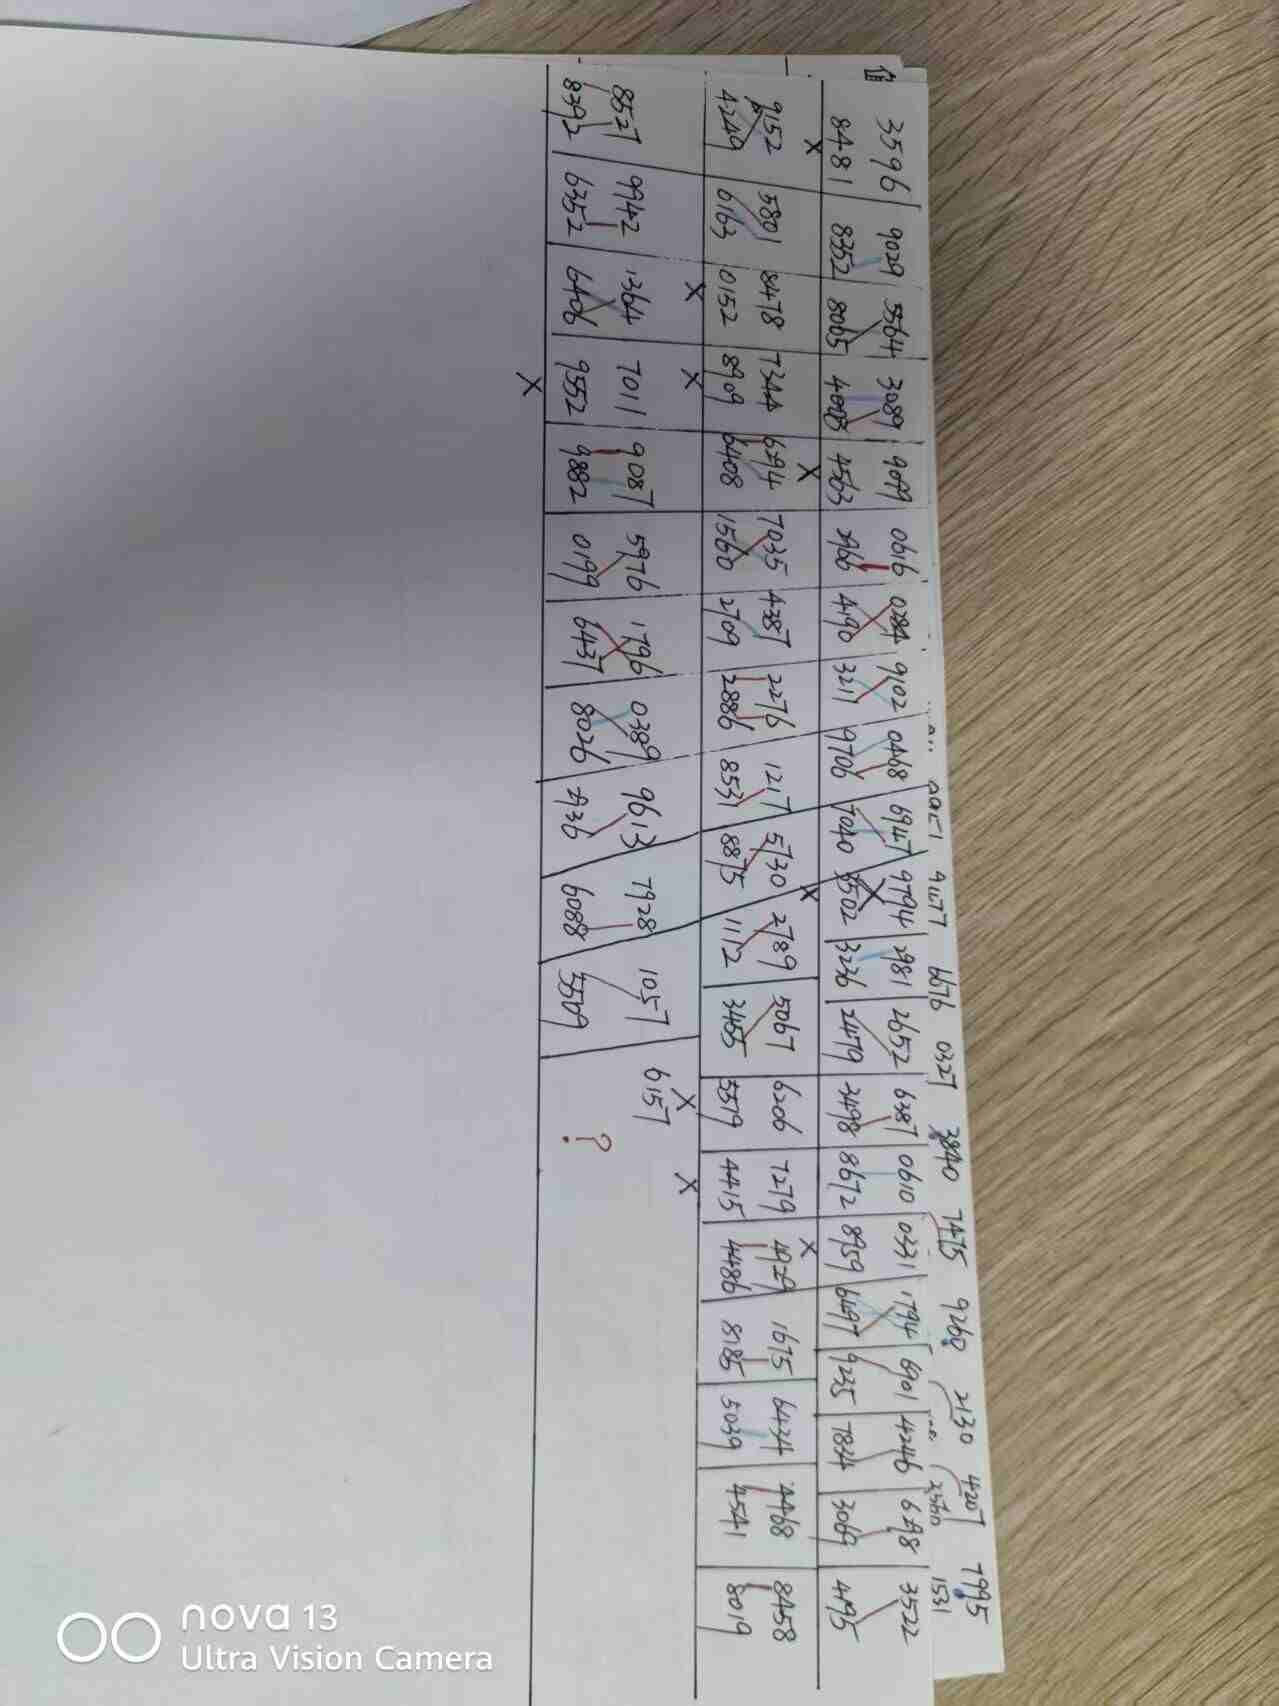 值
7475 9260 2130 4207 7995
9477 6676 0327 3840 2560 1531
3596 9029 5564 3089 9099 0616 0284 9102 0468 6947 9794 2981 2652 6387 0610 0331 1794 6901 4246 6298 3522
8481 8352 8065 4563 4190 3211 9706 7040 3502 3236 2479 3498 8672 8959 6497 9235 7834 3069 4195
X X X X
9152 5801 8478 7344 6294 7035 4387 2276 1217 5730 2789 5067 6206 7279 4929 1675 6434 4468 8458
4349 6163 0152 8909 6408 1560 2709 2886 8531 8875 1112 3455 5519 4415 4486 8185 5039 4541 8019
X X X X
8527 9942 1364 7011 9087 5976 1796 0389 9613 7928 1057 6157
8392 6352 6406 9552 9882 0199 6437 8026 2136 6088 5509 ?
X
nova 13
Ultra Vision Camera